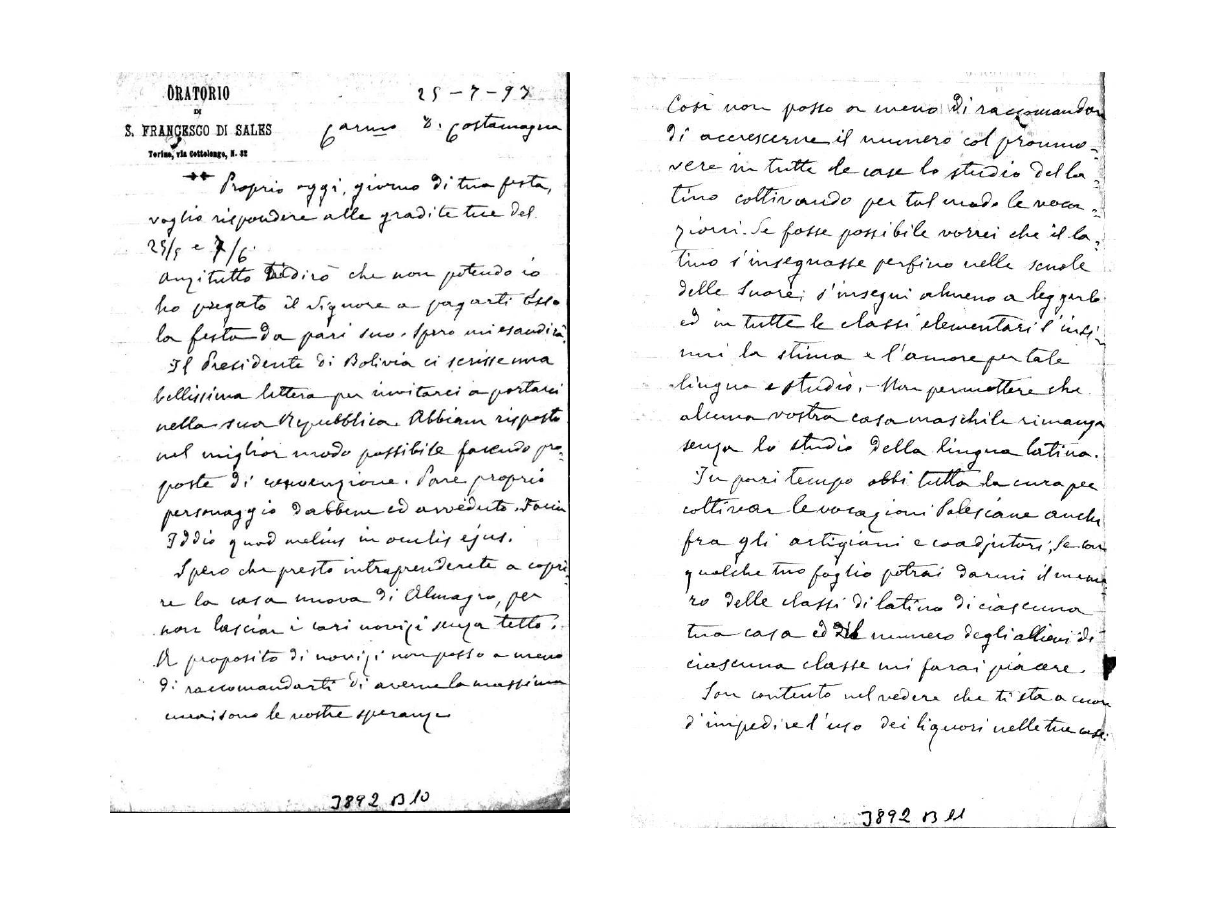 ORATORIO
DI
S. FRANCESCO DI SALES
Torino, via Cottolengo, N. 32
25-7-93
Carmo D. Costamagna
Proprio oggi, giorno di tua festa,
voglio rispondere alle gradite tue del
25/5 e 7/6.
Anzitutto ti dirò che non potendo io
ho pregato il Signore a pagarti Esso
la festa da pari suo. Spero mi esaudirà.
Il Presidente di Bolivia ci scrisse una
bellissima lettera per invitarci a portarci
nella sua Repubblica. Abbiam risposto
nel miglior modo possibile facendo pro=
poste di convenzione. Pare proprio
personaggio dabbene ed avveduto. Faccia
Iddio quod melius in oculis ejus.
Spero che presto intraprenderete a copri=
re la casa nuova di Almagro, per
non lasciar i cari novizi senza tetto.
A proposito di novizi non posso a meno
di raccomandarti di averne la massima
cura: sono le nostre speranze
J892 B 10
Così non posso a meno di raccomandar
di accrescerne il numero col promuo=
vere in tutte le case lo studio del la=
tino coltivando per tal modo le voca=
zioni. Se fosse possibile vorrei che il la=
tino s'insegnasse perfino nelle scuole
delle Suore; s'insegni almeno a leggerlo
ed in tutte le classi elementari s'insi=
nui la stima e l'amore per tale
lingua e studio. Non permettere che
alcuna vostra casa maschile rimanga
senza lo studio della lingua latina.
In pari tempo abbi tutta la cura per
coltivar le vocazioni Salesiane anche
fra gli artigiani e coadjutori; Se con
qualche tuo foglio potrai darmi il nume
ro delle classi di latino di ciascuna
tua casa ed il numero degli allievi di
ciascuna classe mi farai piacere.
Son contento nel vedere che ti sta a cuore
d'impedire l'uso dei liquori nelle tue case.
J892 B 11